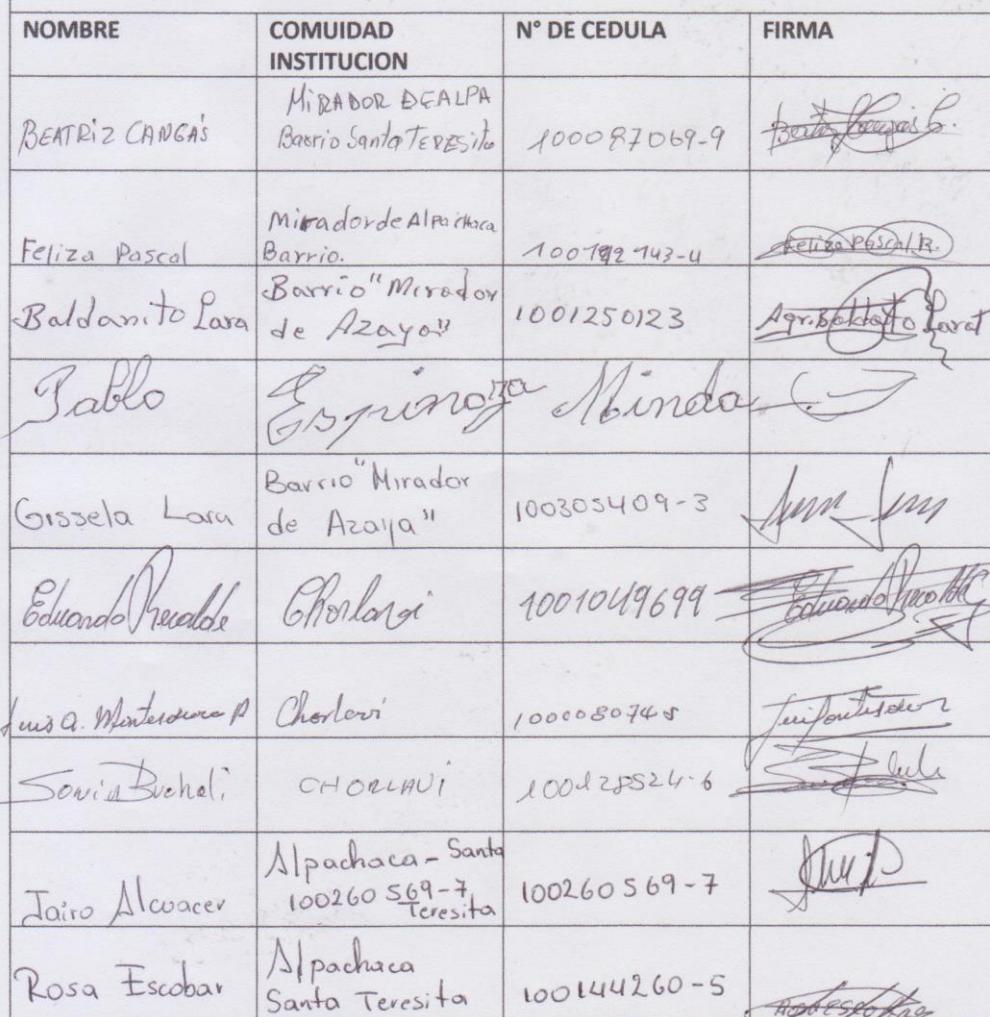 NOMBRE COMUIDAD INSTITUCION N° DE CEDULA FIRMA
BEATRIZ CANGÁS MIRADOR DE ALPA Barrio Santa TERESita 100087069-9 Beatriz Cangás C.
Feliza Pascal Mirador de Alpachaca Barrio. 100192143-4 Feliza Pascal R.
Baldanito Lara Barrio "Mirador de Azaya" 1001250123 Agr. Lara
Pablo Espinoza Minda
Gissela Lara Barrio "Mirador de Azaya" 100305409-3
Eduardo Recalde Chorlavi 1001049699 Eduardo Recalde
Luis A. Chorlavi
Sonia Bucheli CHORLAVI 100128524-6
Jairo Alcuacer Alpachaca - Santa 100260569-7 Teresita 100260569-7
Rosa Escobar Alpachaca Santa Teresita 100144260-5